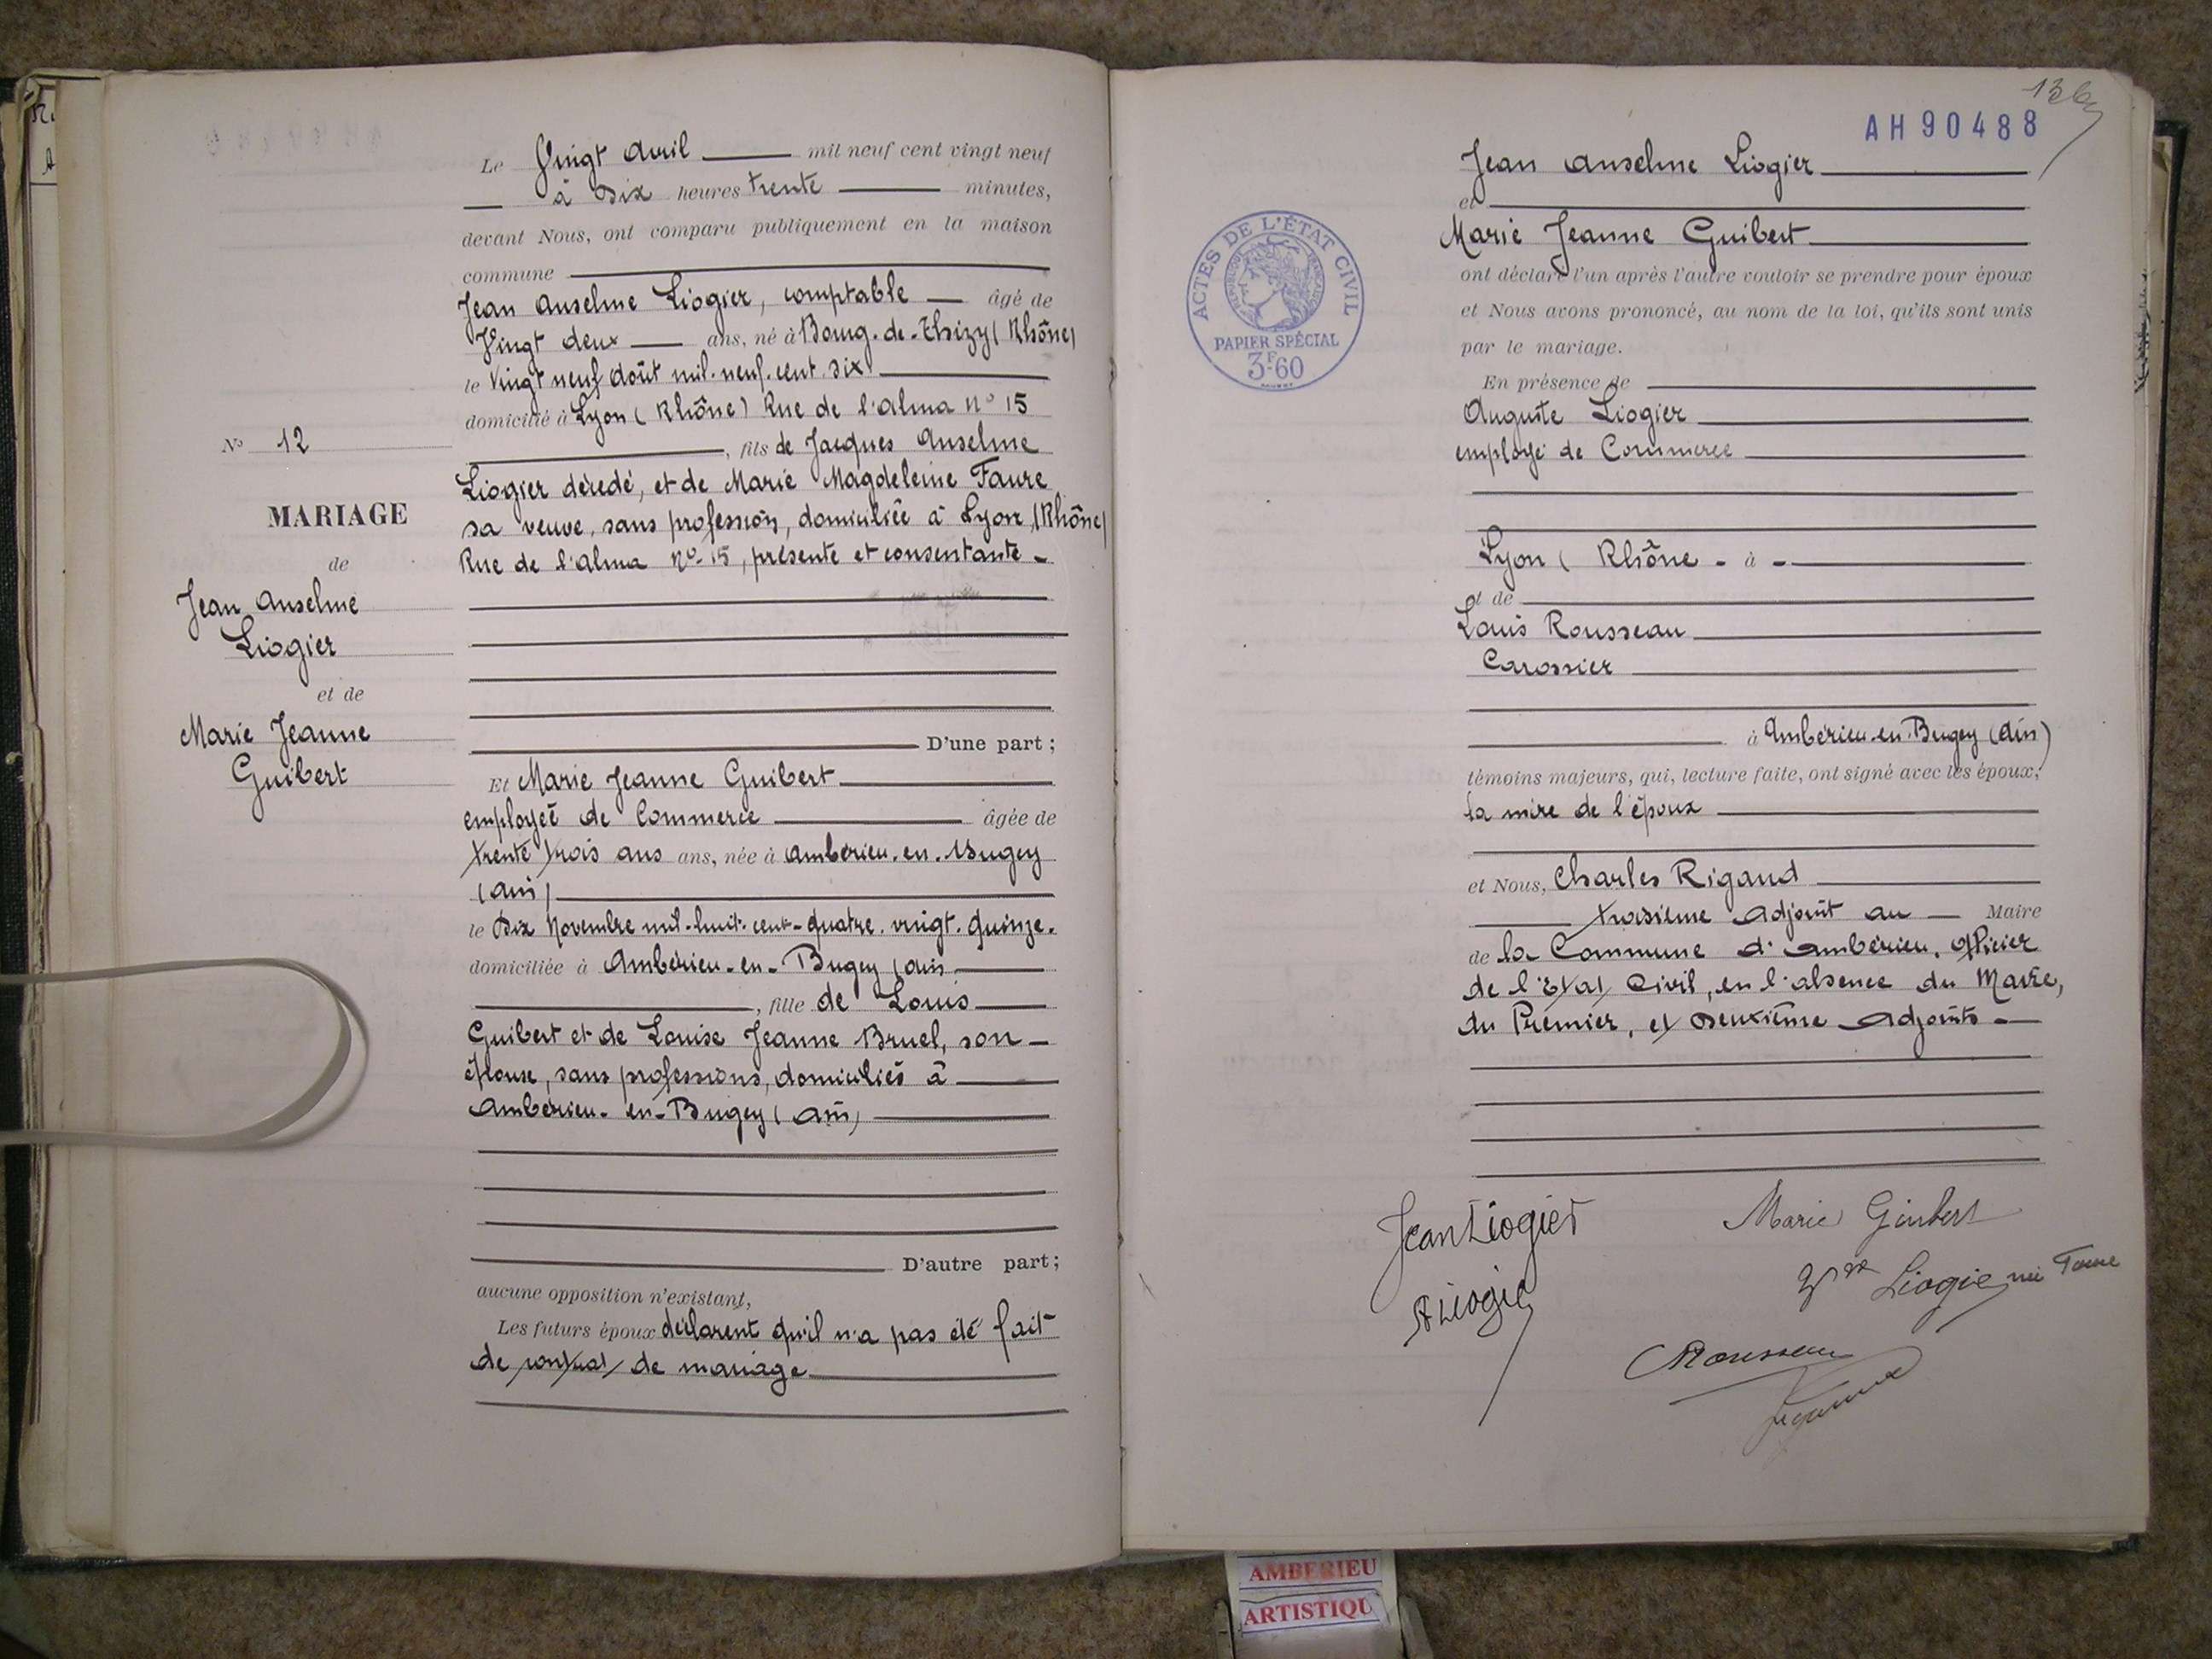 Le Vingt avril mil neuf cent vingt neuf
à Dix heures trente minutes,
devant Nous, ont comparu publiquement en la maison
commune
Jean Anselme Liogier, comptable âgé de
Vingt deux ans, né à Bourg-de-Thizy (Rhône)
le Vingt neuf Août mil-neuf-cent-six
domicilié à Lyon (Rhône) Rue de l'Alma N° 15
, fils de Jacques Anselme
Liogier décédé, et de Marie Magdeleine Faure
sa veuve, sans profession, domiciliée à Lyon, (Rhône)
Rue de l'Alma N° 15, présente et consentante -
D'une part;
Et Marie Jeanne Guibert
employée de Commerce âgée de
trente trois ans ans, née à Ambérieu-en-Bugey
(Ain)
le Dix Novembre mil-huit-cent-quatre-vingt-quinze.
domiciliée à Ambérieu-en-Bugey (Ain
, fille de Louis
Guibert et de Louise Jeanne Bruel, son
épouse, sans professions, domiciliés à
Ambérieu-en-Bugey (Ain)
D'autre part;
aucune opposition n'existant,
Les futurs époux déclarent qu'il n'a pas été fait
de contrat de mariage
N° 12
MARIAGE
de
Jean Anselme
Liogier
et de
Marie Jeanne
Guibert
136
AH 90488
Jean Anselme Liogier
et
Marie Jeanne Guibert
ont déclaré l'un après l'autre vouloir se prendre pour époux
et Nous avons prononcé, au nom de la loi, qu'ils sont unis
par le mariage.
En présence de
Auguste Liogier
employé de Commerce
Lyon (Rhône - à -
et de
Louis Rousseau
Carossier
à Ambérieu-en-Bugey (Ain)
témoins majeurs, qui, lecture faite, ont signé avec les époux,
la mère de l'époux
et Nous, Charles Rigaud
troisième Adjoint au Maire
de la Commune d'Ambérieu, Officier
de l'Etat Civil, en l'absence du Maire,
du Premier, et Deuxième Adjoints -
ACTES DE L'ÉTAT CIVIL
RÉPUBLIQUE FRANÇAISE
PAPIER SPÉCIAL
3F.60
Jean Liogier
Marie Guibert
A Liogier
Vve Liogier née Faure
Rousseau
AMBERIEU
ARTISTIQU